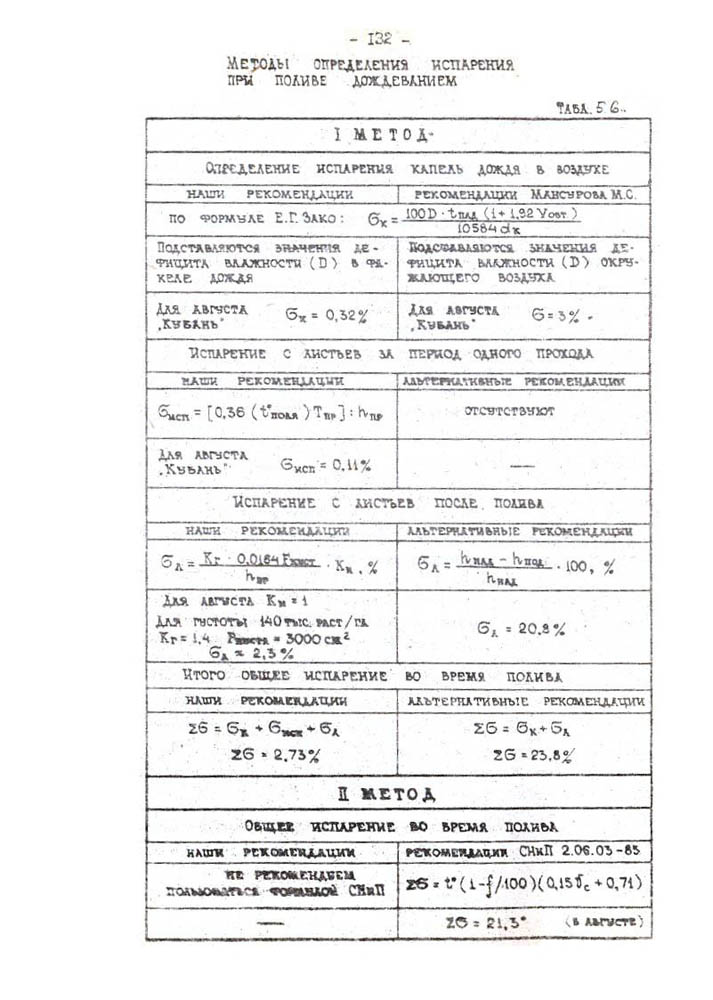 - 132 -
МЕТОДЫ ОПРЕДЕЛЕНИЯ ИСПАРЕНИЯ
ПРИ ПОЛИВЕ ДОЖДЕВАНИЕМ
ТАБЛ. 5 6..
I МЕТОД
ОПРЕДЕЛЕНИЕ ИСПАРЕНИЯ КАПЕЛЬ ДОЖДЯ В ВОЗДУХЕ
НАШИ РЕКОМЕНДАЦИИ
РЕКОМЕНДАЦИИ МАНСУРОВА М.С.
ПО ФОРМУЛЕ Е.Г. ЗАКО: Ϭк = 100D · tпад (1+1,92 Vовт.) / 10584 dк
ПОДСТАВЛЯЮТСЯ ЗНАЧЕНИЯ ДЕ-
ФИЦИТА ВЛАЖНОСТИ (D) В ФА-
КЕЛЕ ДОЖДЯ
ПОДСТАВЛЯЮТСЯ ЗНАЧЕНИЯ ДЕ-
ФИЦИТА ВЛАЖНОСТИ (D) ОКРУ-
ЖАЮЩЕГО ВОЗДУХА
ДЛЯ АВГУСТА
„КУБАНЬ" Ϭк = 0,32%
ДЛЯ АВГУСТА
„КУБАНЬ" Ϭ = 3%
ИСПАРЕНИЕ С ЛИСТЬЕВ ЗА ПЕРИОД ОДНОГО ПРОХОДА
НАШИ РЕКОМЕНДАЦИИ
АЛЬТЕРНАТИВНЫЕ РЕКОМЕНДАЦИИ
Ϭисп = [0,36 (t°поля) Tпр] : hпр
ОТСУТСТВУЮТ
ДЛЯ АВГУСТА
„КУБАНЬ" Ϭисп = 0,11%
—
ИСПАРЕНИЕ С ЛИСТЬЕВ ПОСЛЕ ПОЛИВА
НАШИ РЕКОМЕНДАЦИИ
АЛЬТЕРНАТИВНЫЕ РЕКОМЕНДАЦИИ
Ϭл = Kг · 0,0164 Fлист / hпр · Kн, %
Ϭл = hпад - hпод / hпад · 100, %
ДЛЯ АВГУСТА Kн = 1
ДЛЯ ГУСТОТЫ 140 ТЫС. РАСТ/ГА
Kг = 1,4 Fлиста = 3000 см²
Ϭл = 2,3%
Ϭл = 20,8%
ИТОГО ОБЩЕЕ ИСПАРЕНИЕ ВО ВРЕМЯ ПОЛИВА
НАШИ РЕКОМЕНДАЦИИ
АЛЬТЕРНАТИВНЫЕ РЕКОМЕНДАЦИИ
ΣϬ = Ϭк + Ϭисп + Ϭл
ΣϬ = Ϭк + Ϭл
ΣϬ = 2,73%
ΣϬ = 23,8%
II МЕТОД
ОБЩЕЕ ИСПАРЕНИЕ ВО ВРЕМЯ ПОЛИВА
НАШИ РЕКОМЕНДАЦИИ
РЕКОМЕНДАЦИИ СНиП 2.06.03-85
НЕ РЕКОМЕНДУЕМ
ПОЛЬЗОВАТЬСЯ ФОРМУЛОЙ СНиП
ΣϬ = t° (1-f/100)(0,15 Vc + 0,71)
—
ΣϬ = 21,3° (В АВГУСТЕ)